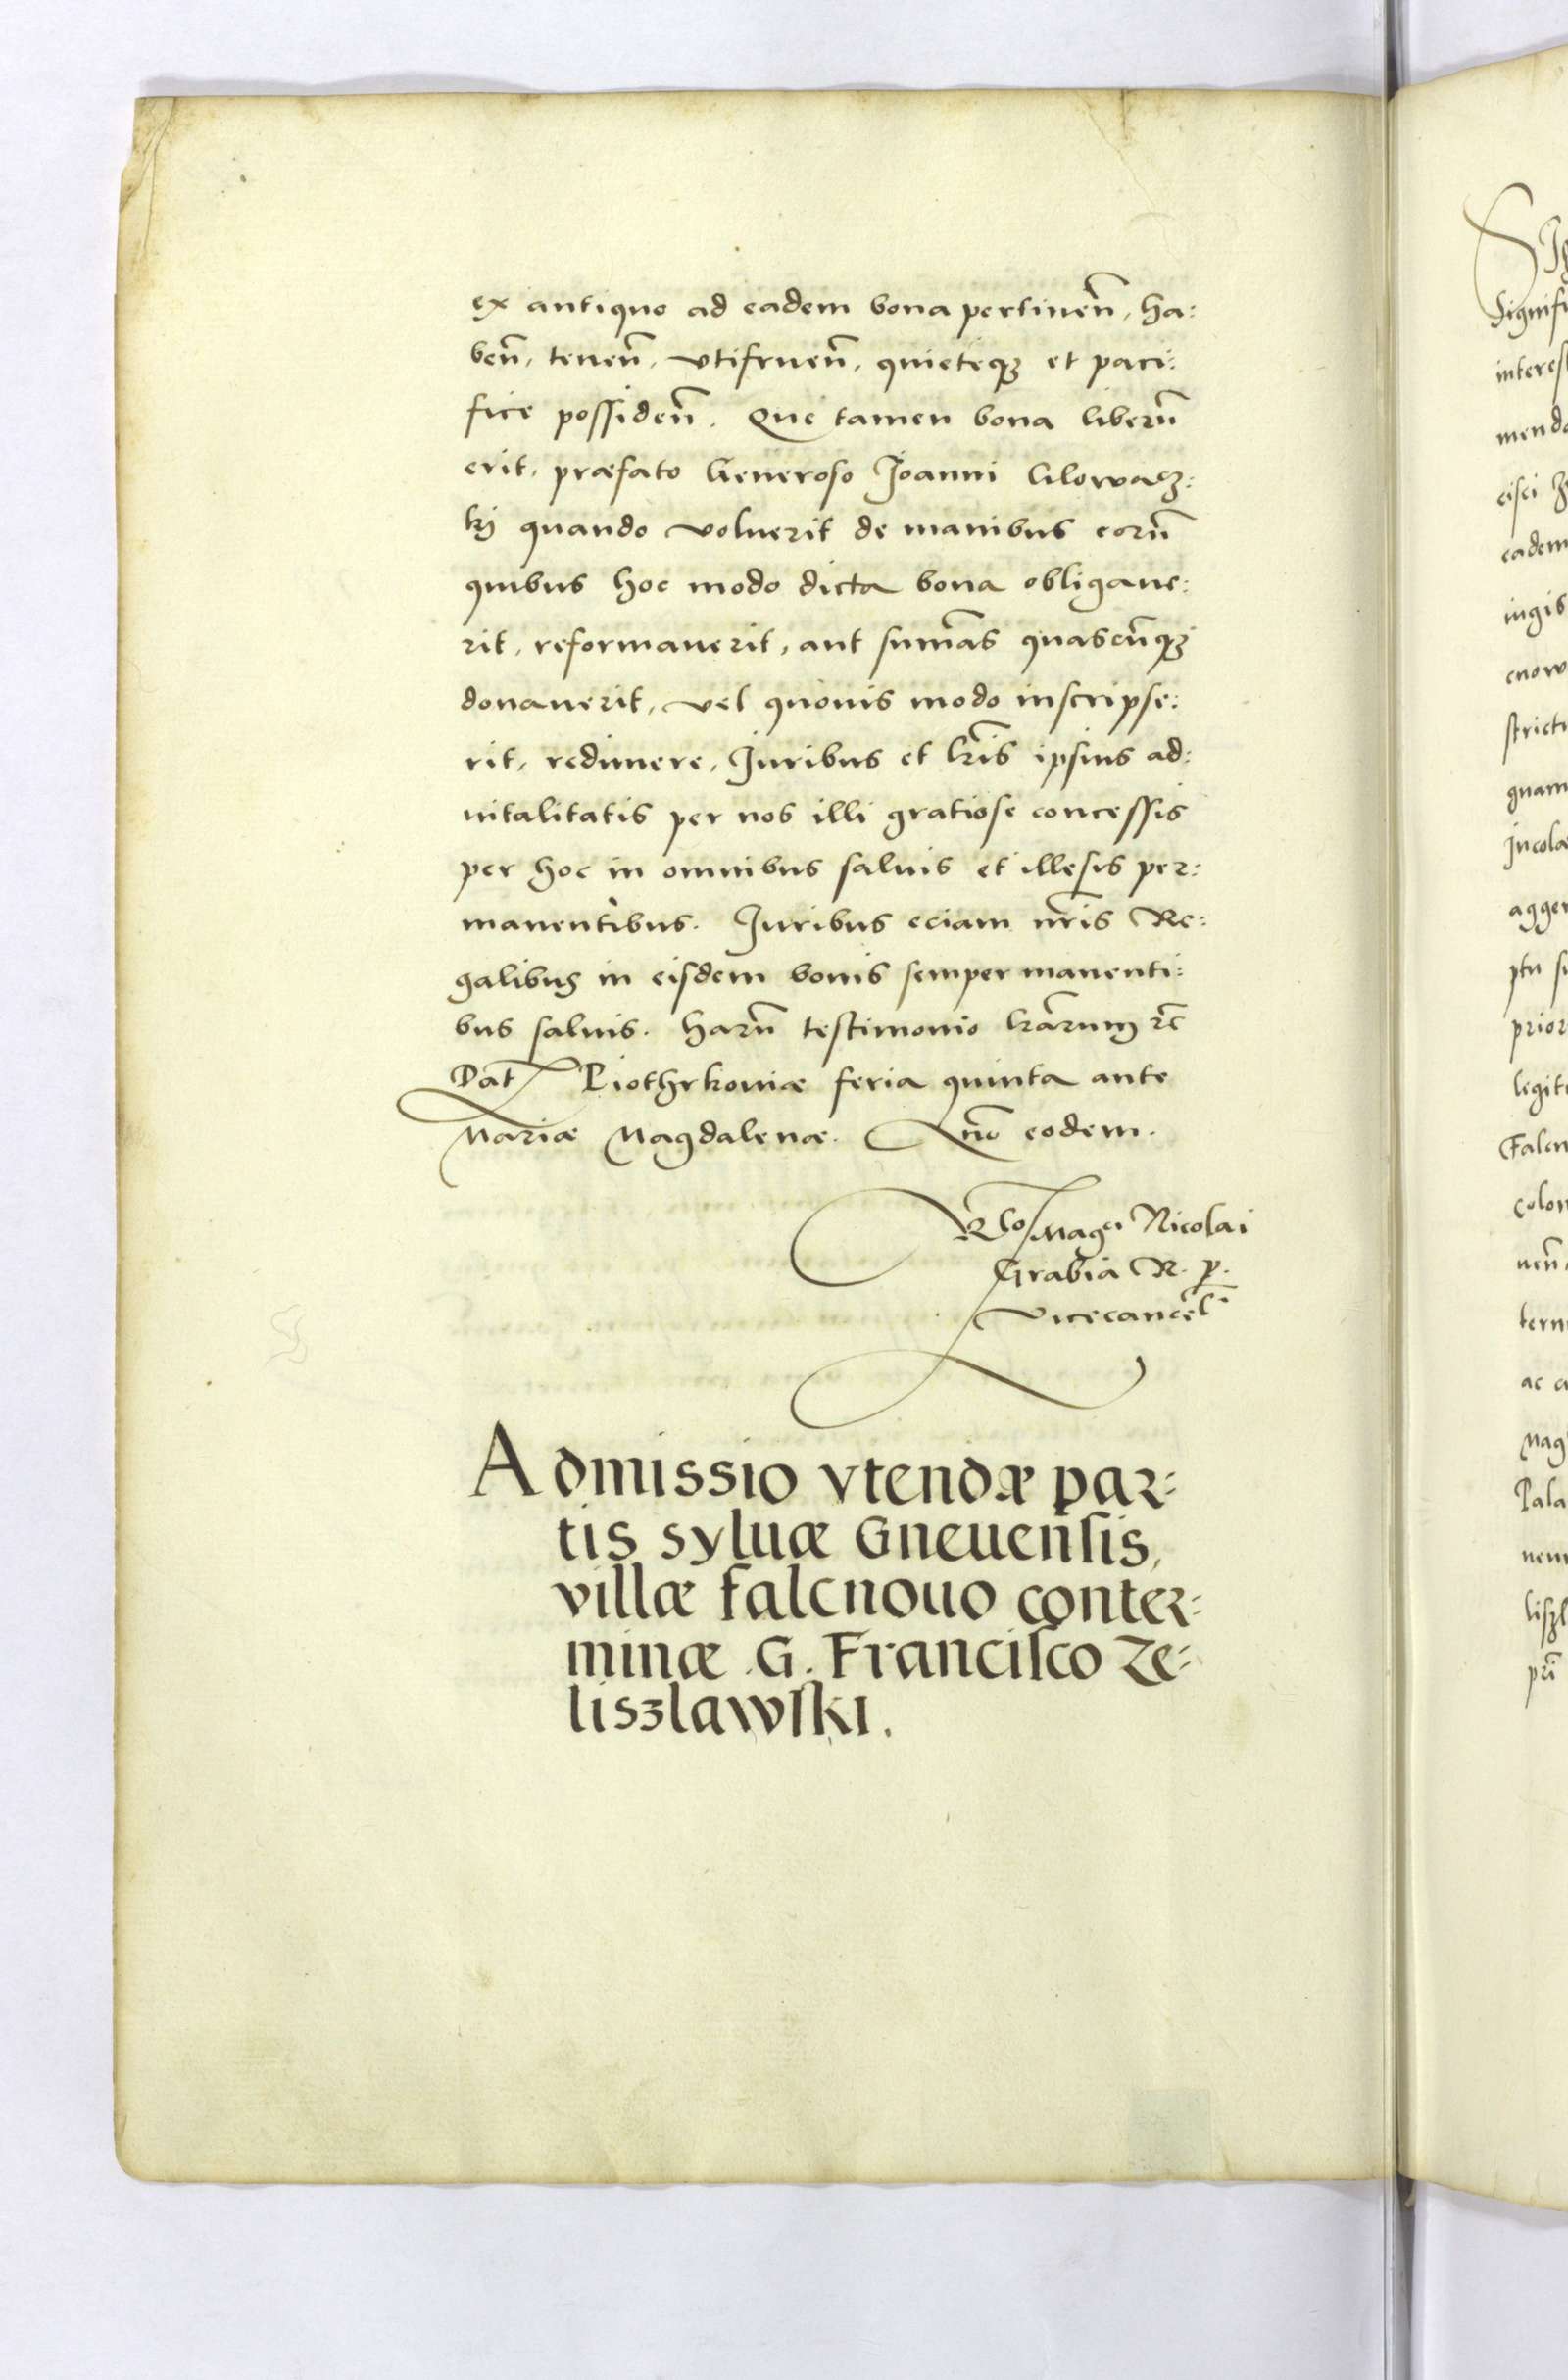 ex antiquo ad eadem bona pertineñ, ha:
beñ, teneñ, vtifrueñ, quieteqꝫ et paci:
fice possideñ. Que tamen bona liberũ
erit, præfato Generoso Joanni Glowacz:
kj quando voluerit de manibus eorũ
quibus hoc modo dicta bona obligaue:
rit, reformauerit, aut sum̃as quascũqꝫ
donauerit, vel quouis modo inscripse:
rit, redimere, Juribus et l̃ris ipsius ad:
uitalitatis per nos illi gratiose concessis
per hoc in omnibus saluis et illesis per:
manentibus. Juribus eciam nr̃is Re:
galibus in eisdem bonis semper manenti:
bus saluis. Harũ testimonio l̃rarum ꝛc̃
Dat̃ Piothrkouiæ feria quinta ante
Mariæ Magdalenæ. Añno eodem.
R̃lo Mag^ci Nicolai
Grabia R. p.
Vicecancel̃.
Admissio vtendæ par:
tis syluæ Gneuensis,
villæ falcnouo conter:
minæ .G. Francisco Ze:
liszlawski.
Signifi
interes
menda
cisci
eadem
ingis
cnow
strictu
quam
Incola
agger
ptu su
prior
legit
Falcn
colon
neñ
tern
ac
Mag
Pala
liszl
pr̃i